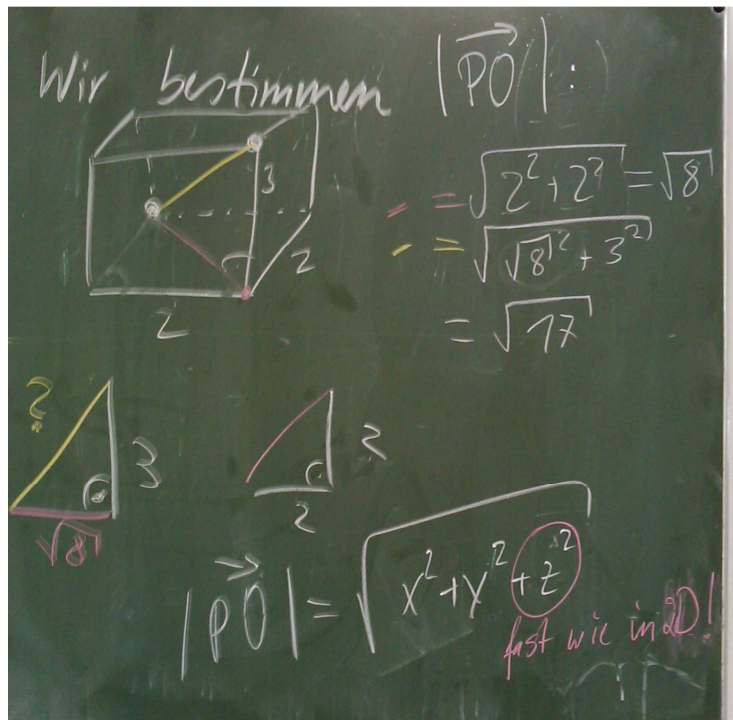 Wir bestimmen |PO⃗|:
= √(2² + 2²) = √8
3
= √(√8² + 3²)
2
= √17
2
?
3
2
√8
2
|PO⃗| = √(x² + y² + z²)
fast wie in 2D!